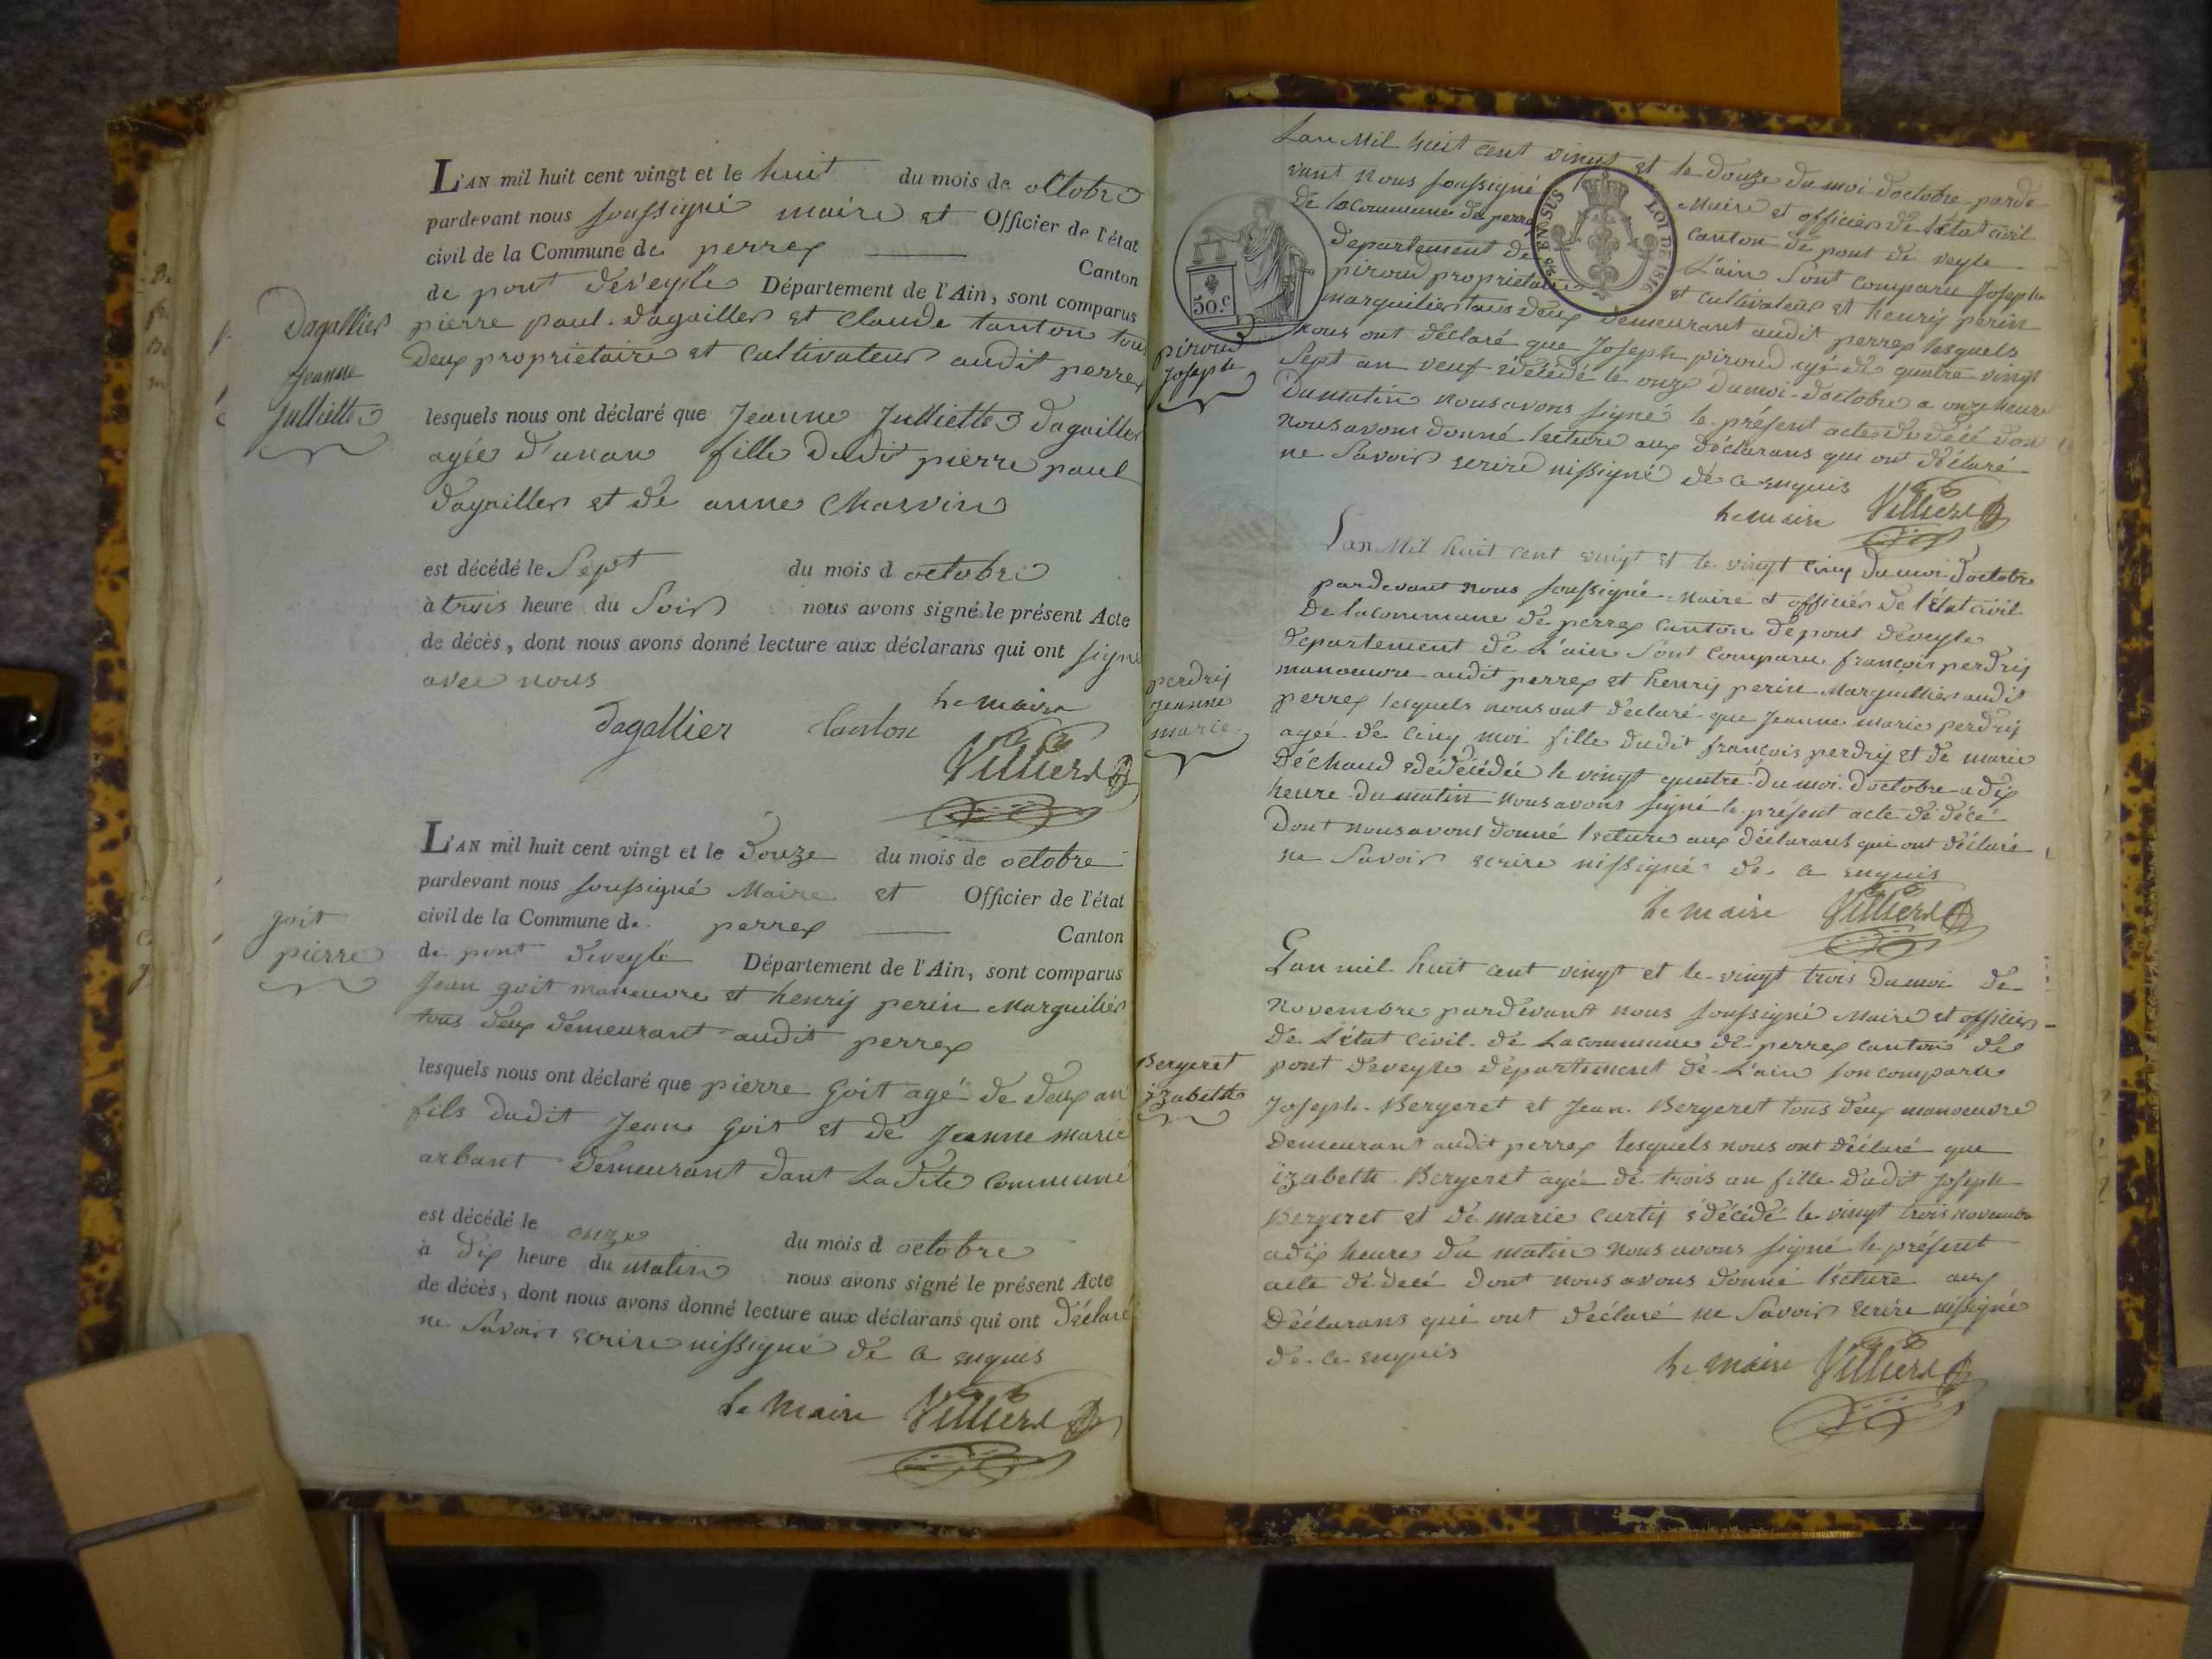 L'AN mil huit cent vingt et le huit du mois de octobre
pardevant nous soussigné maire et Officier de l'état
civil de la Commune de perrex Canton
de pont deveyle Département de l'Ain, sont comparus
pierre paul dagallier et Claude tanton tous
deux proprietaire et cultivateur audit perrex
Dagallier
Jeanne
Julliette
lesquels nous ont déclaré que Jeanne Julliette dagallier
agée d'un an fille dudit pierre paul
dagallier et de anne Charvin
est décédé le Sept du mois d octobre
à trois heure du Soir nous avons signé le présent Acte
de décès, dont nous avons donné lecture aux déclarans qui ont signé
avec nous
Dagallier tanton le maire
Villierd
L'AN mil huit cent vingt et le douze du mois de octobre
pardevant nous soussigné Maire et Officier de l'état
civil de la Commune de perrex Canton
de pont deveyle Département de l'Ain, sont comparus
goit
pierre
Jean goit manœuvre et henrij perin Marguilier
tous deux demeurant audit perrex
lesquels nous ont déclaré que pierre goit agé de deux an
fils dudit Jean goit et de Jeanne marie
arbant demeurant dant Ladite Commune
est décédé le onze du mois d octobre
à dix heure du matin nous avons signé le présent Acte
de décès, dont nous avons donné lecture aux déclarans qui ont déclaré
ne Savoir ecrire nissigné de ce enquis
le Maire Villierd
Lan Mil huit cent vingt et le douze du moi doctobre parde
vant nous soussigné Maire et officier de létat civil
de la commune de perrex canton de pont de veyle
departement de L'ain Sont comparu Joseph
piroud proprietaire et cultivateur et henrij perin
marguilier tous deux demeurant audit perrex lesquels
nous ont déclaré que Joseph piroud agé de quatre vingt
Sept an veuf edécédé le onze du moi doctobre a onze heure
du matin nous avons signé le présent acte de décé don
nous avons donné lecture aux déclarans qui ont déclaré
ne Savoir ecrire nissigné de ce enquis
le maire Villierd
50.c
LOI DE 1816
piroud
Joseph
Lan Mil huit cent vingt et le vingt cinq du moi doctobre
pardevant nous soussigné Maire et officier de l'état civil
De la commune de perrex canton de pont deveyle
departement de L'ain Sont comparu françois perdrij
manoeuvre audit perrex et henrij perin Marguillier audit
perrex lesquels nous ont déclaré que Jeanne marie perdrij
agée de cinq moi fille dudit françois perdrij et de marie
Déchaud edédécédée le vingt quatre du moi doctobre a dix
heure du matin nous avons signé le présent acte de décé
Dont nous avons donné lecture aux déclarans qui ont déclaré
ne Savoir ecrire nissigné de ce enquis
le maire Villierd
perdrij
jeanne
marie
Lan mil huit cent vingt et le vingt trois du moi de
Novembre pardevant nous soussigné Maire et officier
de L'état civil de La commune de perrex canton de
pont deveyle departement de L'ain son comparu
Joseph Bergeret et Jean Bergeret tous deux manoeuvre
demeurant audit perrex lesquels nous ont déclaré que
izabeth Bergeret agée de trois an fille dudit Joseph
Bergeret et de marie curtij edécédé le vingt trois novembre
adix heure du matin nous avons signé le présent
acte de decé dont nous avons donné lecture aux
Déclarans qui ont déclaré ne Savoir ecrire nissigné
de ce enquis le maire Villierd
Bergeret
izabeth